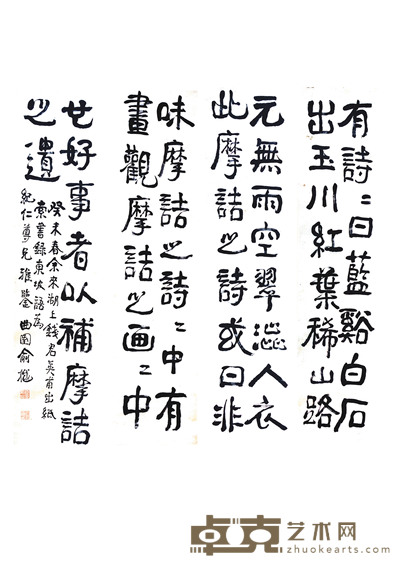 有詩〻曰藍谿白石
出玉川紅葉稀山路
元無雨空翠溼人衣
此摩詰之詩或曰非
味摩詰之詩〻中有
畫觀摩詰之画〻中
也好事者以補摩詰
之遺
癸未春余來湖上錢君英甫出紙
索書錄東坡語為
紀仁尊兄雅鑒 曲園俞樾
卓克艺术网
zhuokearts.com